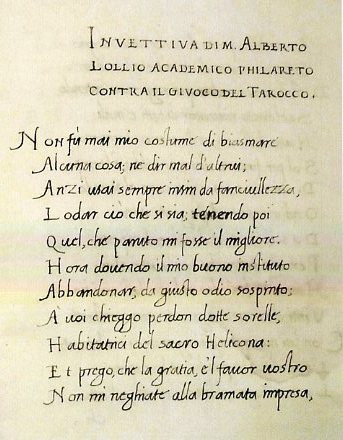 INVETTIVA DI M. ALBERTO
LOLLIO ACADEMICO PHILARETO
CONTRA IL GIVOCO DEL TAROCCO.
Non fù mai mio costume di biasmare
Alcuna cosa, ne dir mal d'altrui;
Anzi usai sempre insin da fanciullezza,
Lodar ciò che si sia; tenendo poi
Quel, che paruto mi fosse il migliore.
Hora dovendo il mio buono instituto
Abbandonar, da giusto odio sospinto;
A voi chieggo perdon dotte sorelle,
Habitatrici del sacro Helicona:
Et prego, che la gratia, e'l favor vostro
Non mi neghiate alla bramata impresa,